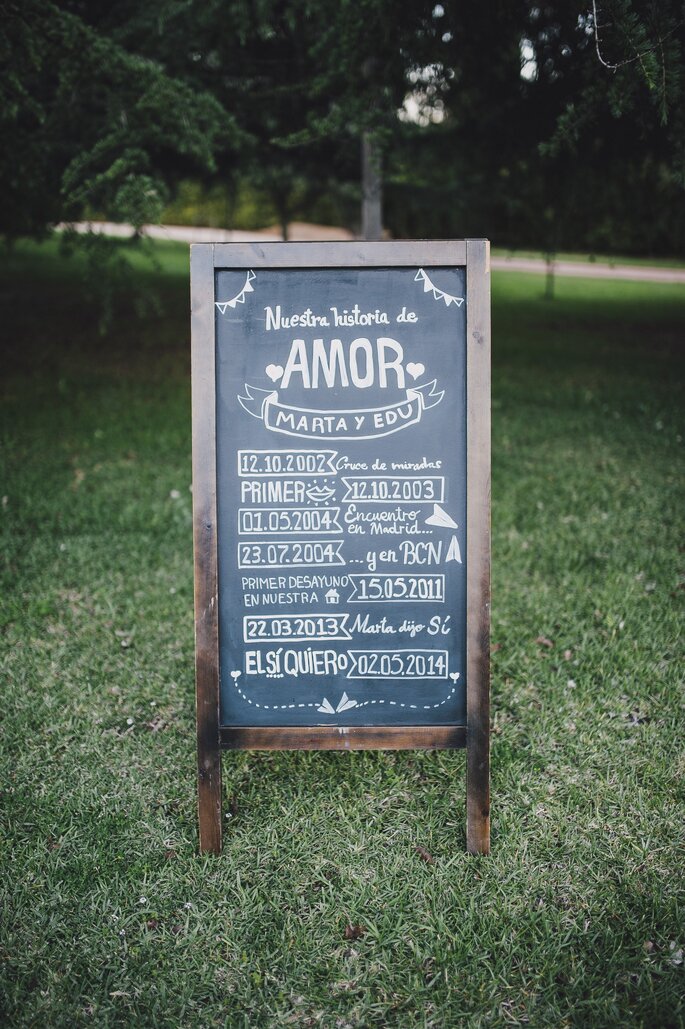 Nuestra historia de
AMOR
MARTA Y EDU
12.10.2002 Cruce de miradas
PRIMER 12.10.2003
01.05.2004 Encuentro
en Madrid...
23.07.2004 ...y en BCN
PRIMER DESAYUNO
EN NUESTRA 15.05.2011
22.03.2013 Marta dijo Sí
EL SÍ QUIERO 02.05.2014